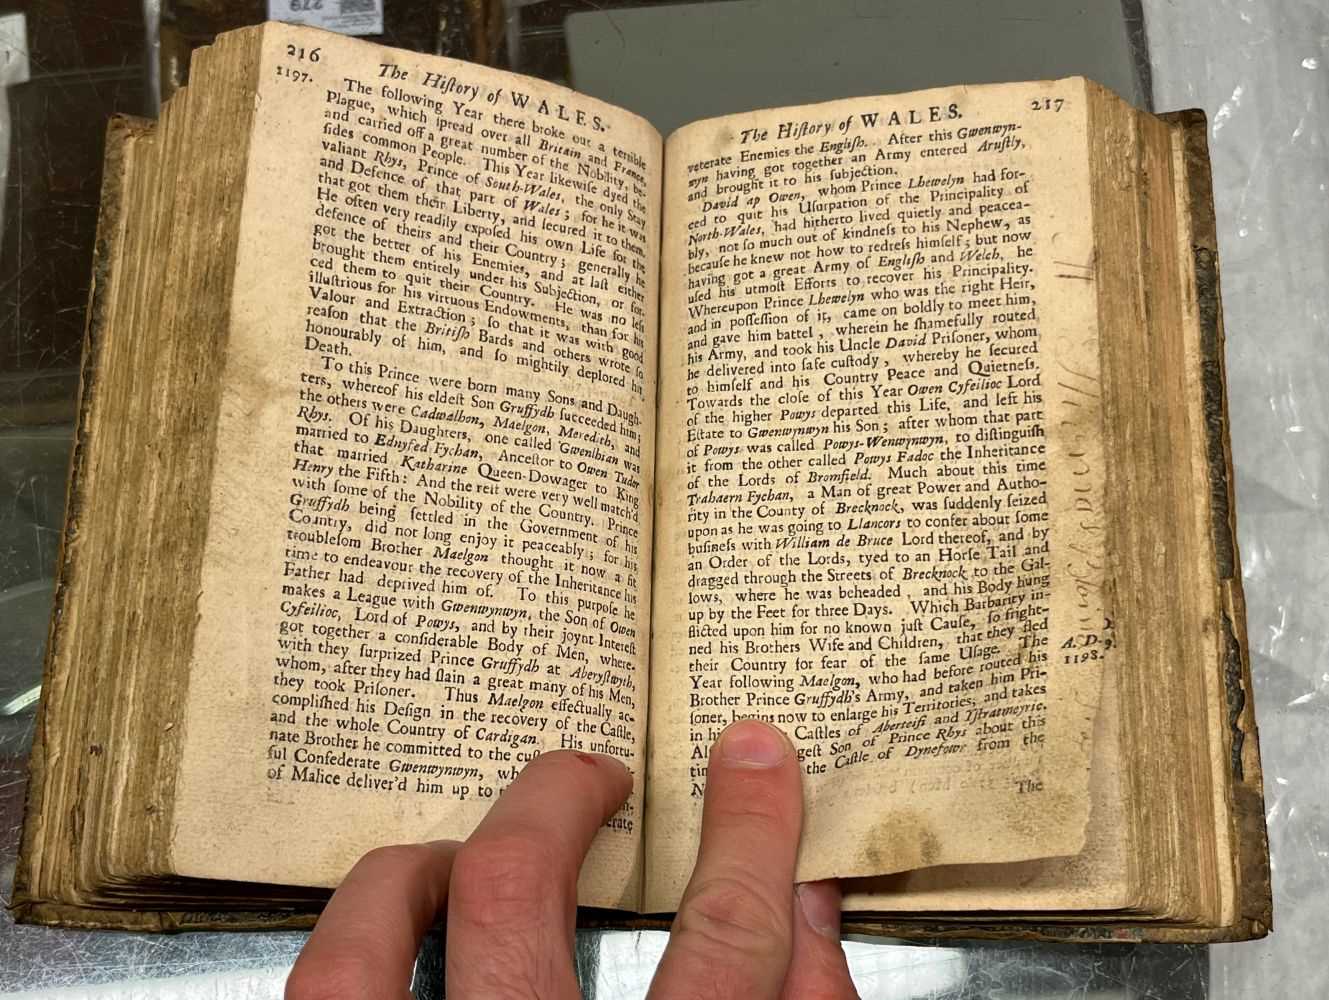 279
216
The Hiſtory of WALES.
1197.
The following Year there broke out a terrible
Plague, which ſpread over all Britain and France,
and carried off a great number of the Nobility, be-
ſides common People. This Year likewiſe dyed the
valiant Rhys, Prince of South-Wales, the only Stay
and Defence of that part of Wales; for he it was
that got them their Liberty, and ſecured it to them.
He often very readily expoſed his own Life for the
defence of theirs and their Country; generally he
got the better of his Enemies, and at laſt either
brought them entirely under his Subjection, or for-
ced them to quit their Country. He was no leſs
illuſtrious for his virtuous Endowments, than for his
Valour and Extraction; ſo that it was with good
reaſon that the Britiſh Bards and others wrote ſo
honourably of him, and ſo mightily deplored his
Death.
To this Prince were born many Sons and Daugh-
ters, whereof his eldeſt Son Gruffydh ſucceeded him;
the others were Cadwalhon, Maelgon, Meredith, and
Rhys. Of his Daughters, one called Gwenlhian was
married to Ednyfed Fychan, Anceſtor to Owen Tudor
that married Katharine Queen-Dowager to King
Henry the Fifth: And the reſt were very well match'd
with ſome of the Nobility of the Country. Prince
Gruffydh being ſettled in the Government of his
Country, did not long enjoy it peaceably; for his
troubleſom Brother Maelgon thought it now a fit
time to endeavour the recovery of the Inheritance his
Father had deprived him of. To this purpoſe he
makes a League with Gwenwynwyn, the Son of Owen
Cyfeilioc, Lord of Powys, and by their joynt Intereſt
got together a conſiderable Body of Men, where-
with they ſurprized Prince Gruffydh at Aberyſtwyth,
whom, after they had ſlain a great many of his Men,
they took Priſoner. Thus Maelgon effectually ac-
compliſhed his Deſign in the recovery of the Caſtle,
and the whole Country of Cardigan. His unfortu-
nate Brother he committed to the
ful Confederate Gwenwynwyn,
of Malice deliver'd him up to
217
The Hiſtory of WALES.
veterate Enemies the Engliſh. After this Gwenwyn-
wyn having got together an Army entered Aruſtly,
and brought it to his ſubjection.
David ap Owen, whom Prince Lhewelyn had for-
ced to quit his Uſurpation of the Principality of
North-Wales, had hitherto lived quietly and peacea-
bly, not ſo much out of kindneſs to his Nephew, as
becauſe he knew not how to redreſs himſelf; but now
having got a great Army of Engliſh and Welch, he
uſed his utmoſt Efforts to recover his Principality.
Whereupon Prince Lhewelyn who was the right Heir,
and in poſſeſſion of it, came on boldly to meet him,
and gave him battel, wherein he ſhamefully routed
his Army, and took his Uncle David Priſoner, whom
he delivered into ſafe cuſtody, whereby he ſecured
to himſelf and his Country Peace and Quietneſs.
Towards the cloſe of this Year Owen Cyfeilioc Lord
of the higher Powys departed this Life, and left his
Eſtate to Gwenwynwyn his Son; after whom that part
of Powys was called Powys-Wenwynwyn, to diſtinguiſh
it from the other called Powys Fadoc the Inheritance
of the Lords of Bromfield. Much about this time
Trahaern Fychan, a Man of great Power and Autho-
rity in the County of Brecknock, was ſuddenly ſeized
upon as he was going to Llancors to confer about ſome
buſineſs with William de Bruce Lord thereof, and by
an Order of the Lords, tyed to an Horſe Tail and
dragged through the Streets of Brecknock to the Gal-
lows, where he was beheaded, and his Body hung
up by the Feet for three Days. Which Barbarity in-
flicted upon him for no known juſt Cauſe, ſo fright-
ned his Brothers Wife and Children, that they fled
their Country for fear of the ſame Uſage. The
A. D.
Year following Maelgon, who had before routed his
1198.
Brother Prince Gruffydh's Army, and taken him Pri-
ſoner, begins now to enlarge his Territories, and takes
in Caſtles of Aberteifi and Yſtratmeyric.
Son of Prince Rhys about this
the Caſtle of Dynefowr from the
The